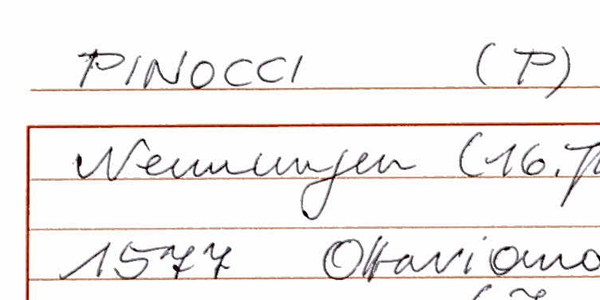 PINOCCI (P)
Nennungen (16. J
1577 Ottaviano